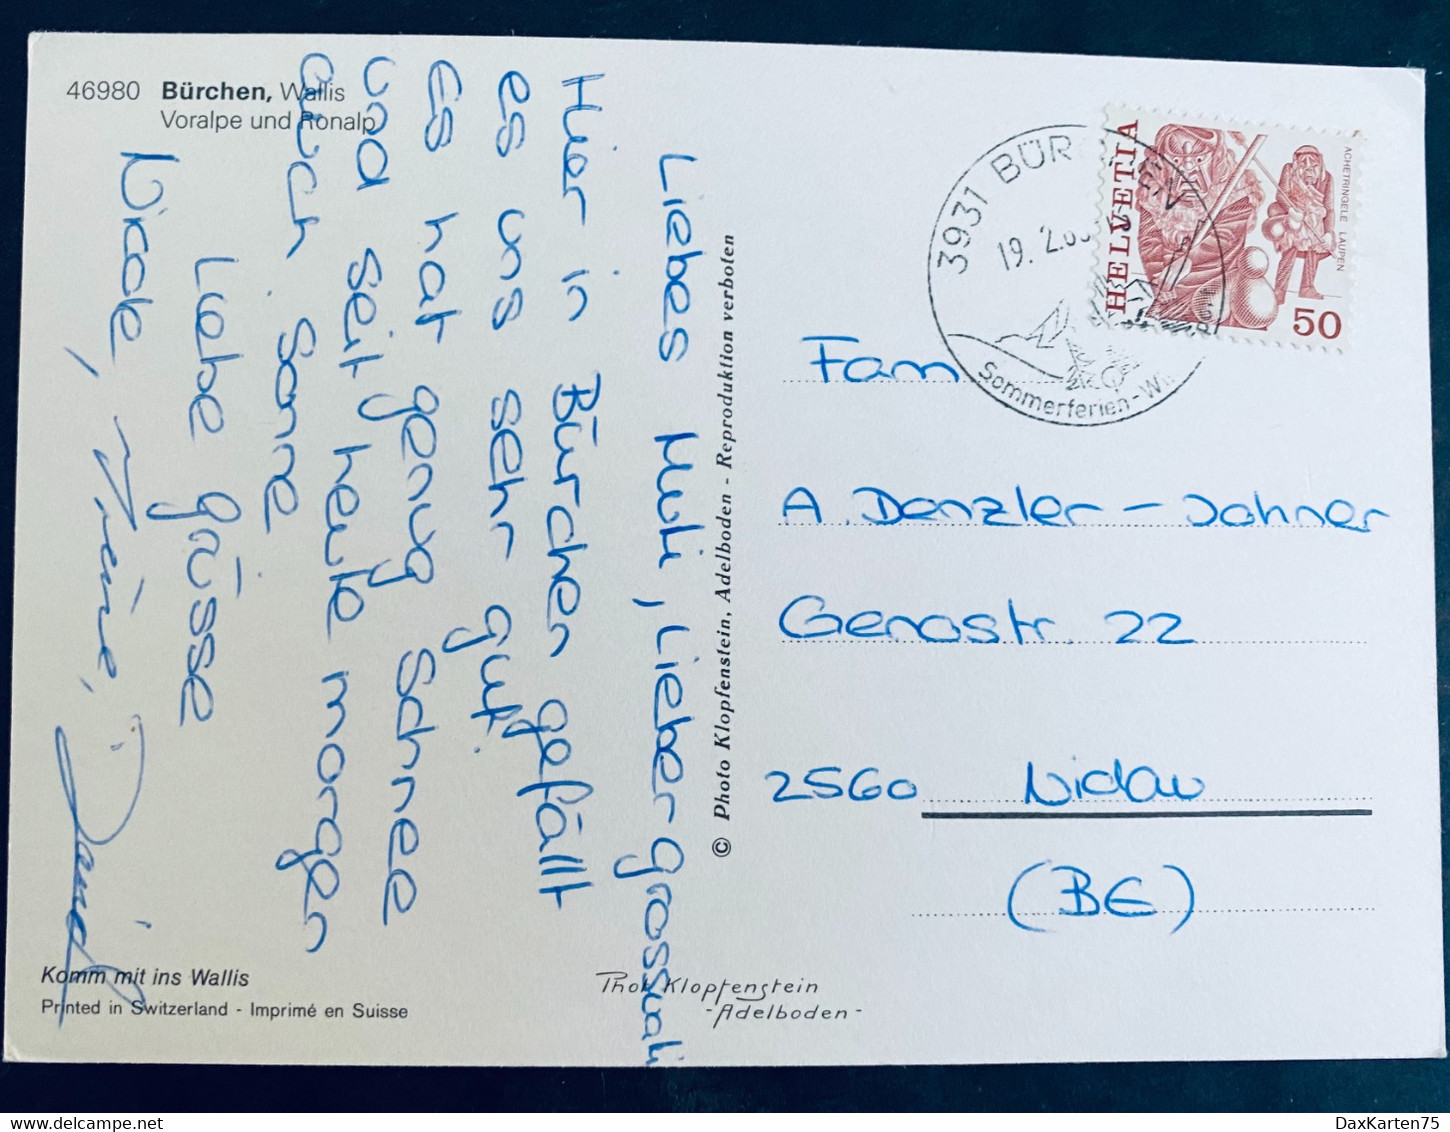 46980 Bürchen, Wallis
Voralpe und Ronalp
Liebes Muti, Lieber grossvati
Hier in Bürchen gefällt
es uns sehr gut.
Es hat genug Schnee
und seit heute morgen
auch Sonne
Liebe grüsse
Nicole, Irène, Daniel
Komm mit ins Wallis
Printed in Switzerland - Imprimé en Suisse
© Photo Klopfenstein, Adelboden - Reproduktion verboten
Phot Klopfenstein
-Adelboden-
3931 BÜRCHEN
19. 2.
Sommerferien-Wi
HELVETIA
ACHETRINGELE LAUPEN
50
Fam
A. Denzler - Jahner
Genostr. 22
2560 Nidau
(BE)
DaxKarten75